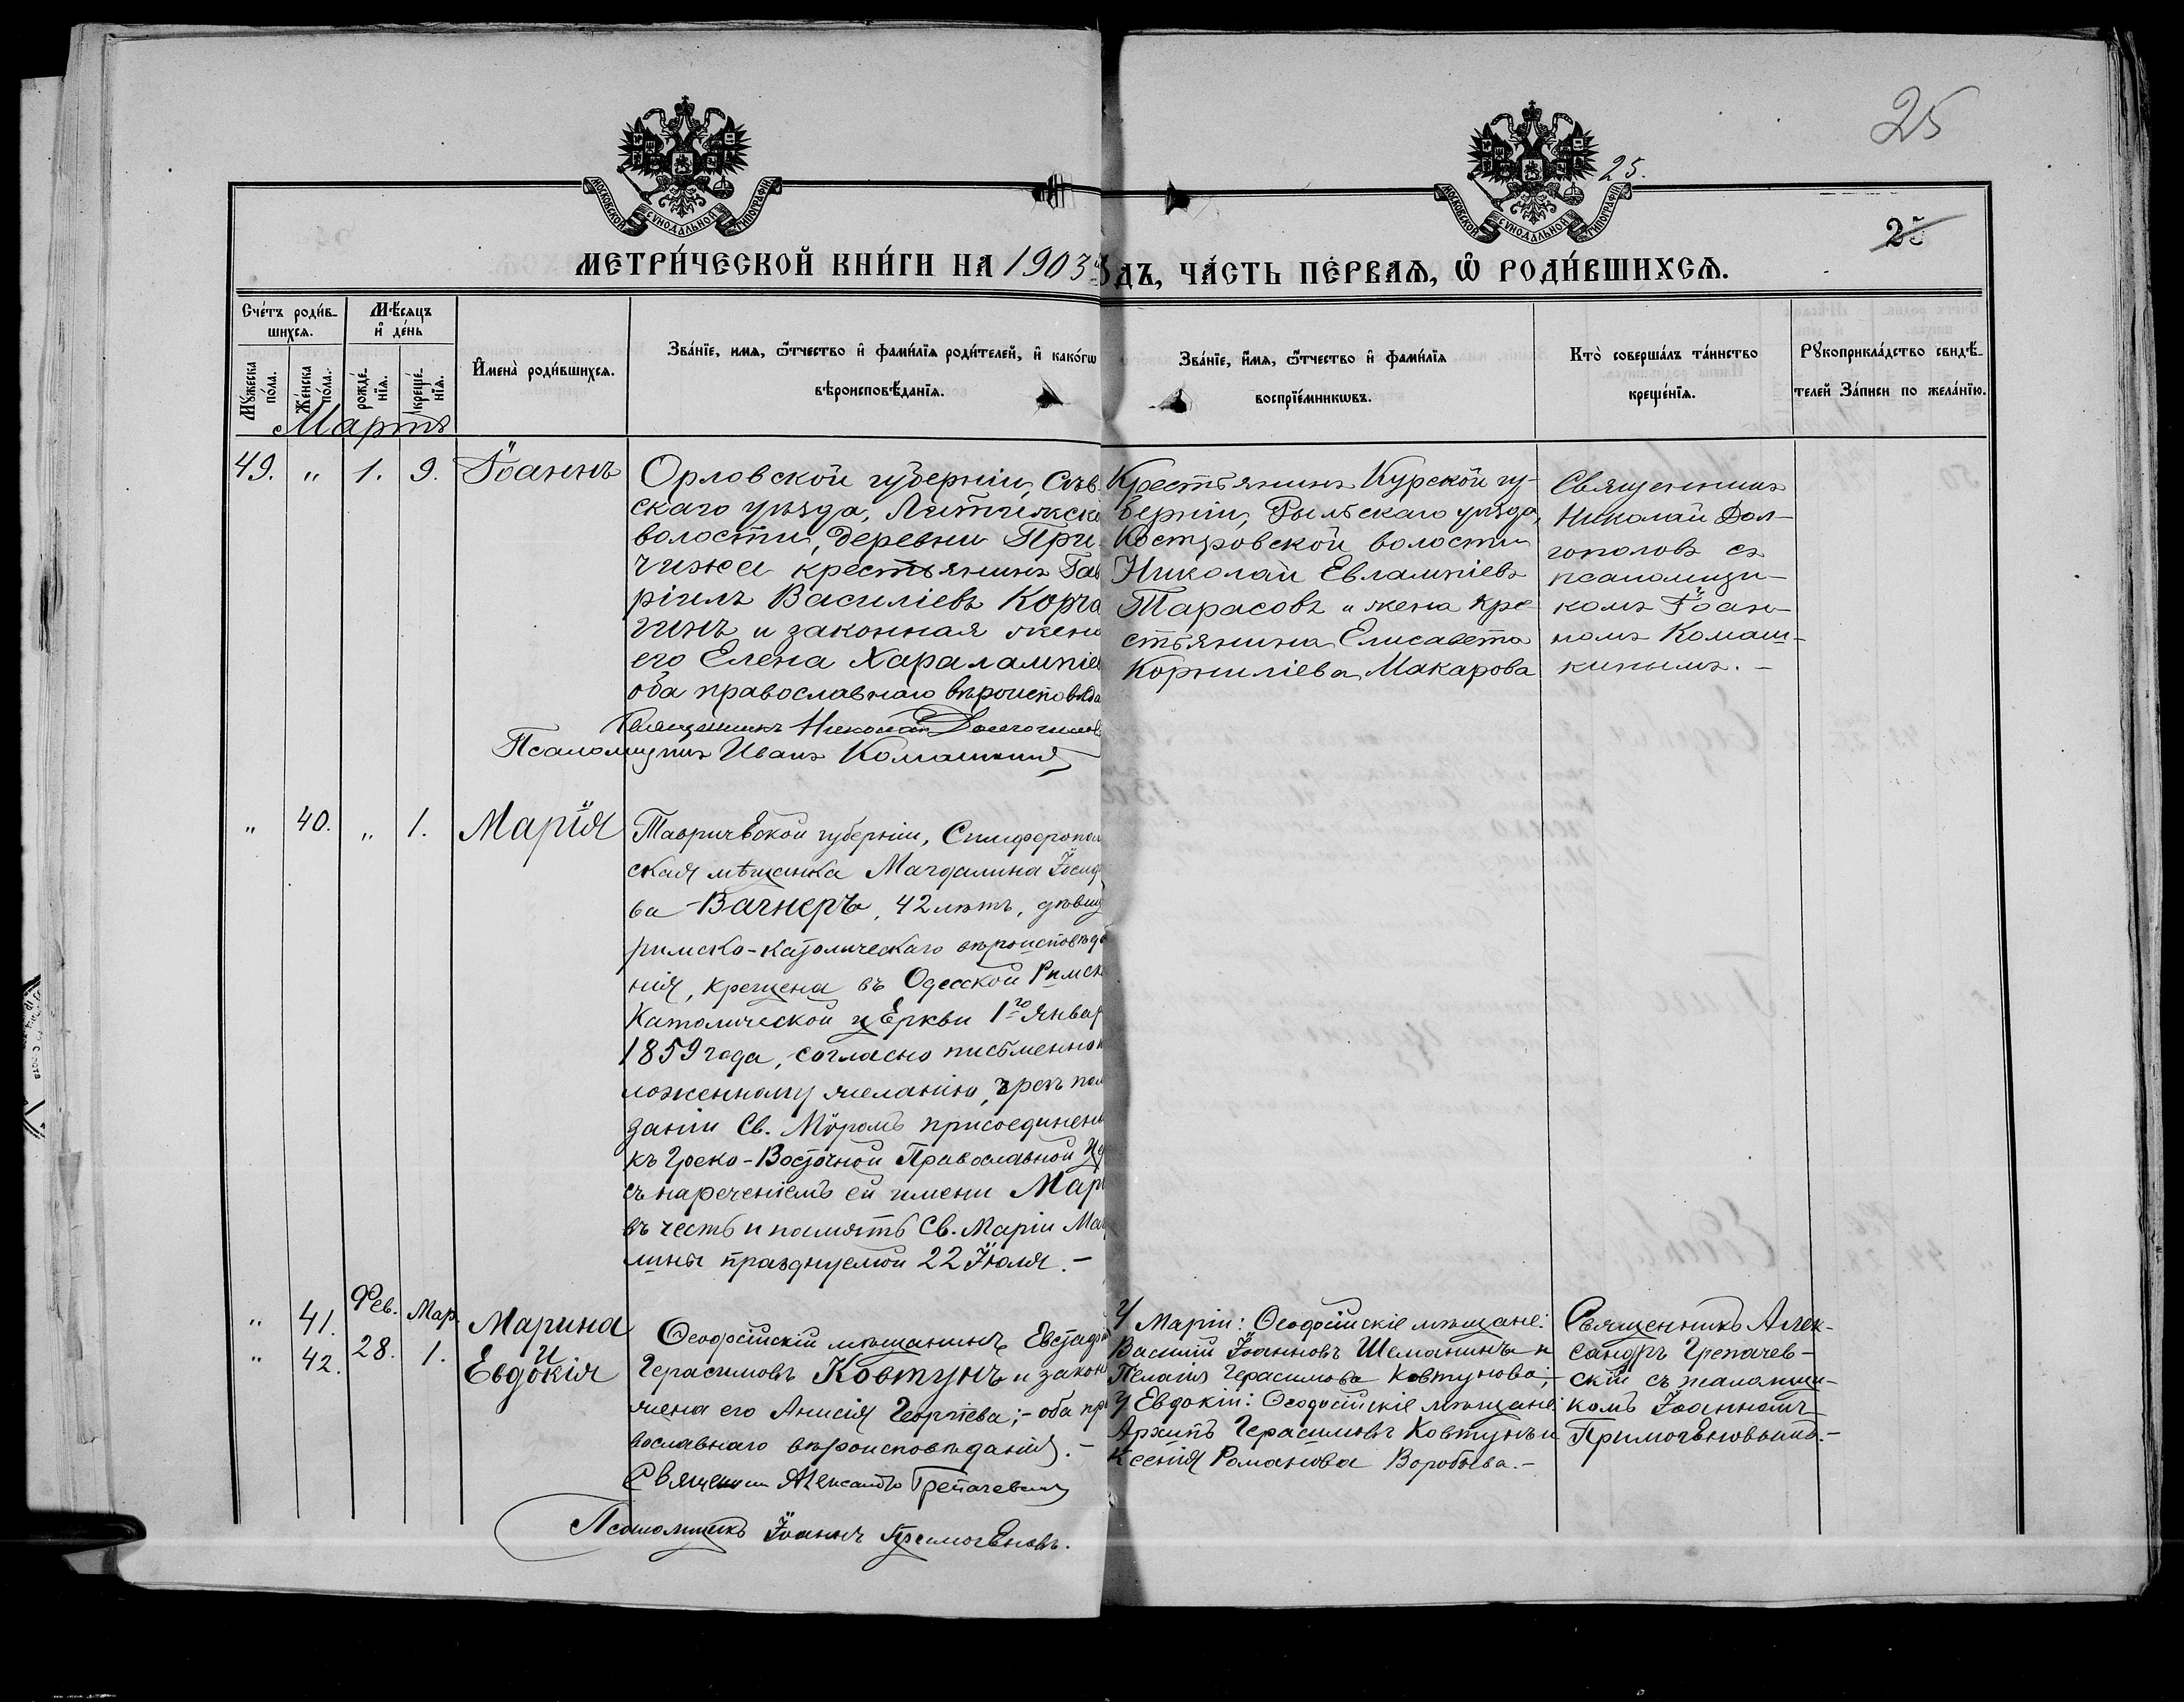 25
25.
25
МОСКОВСКОЙ СѴНОДАЛЬНОЙ ТИПОГРАФІИ
МОСКОВСКОЙ СѴНОДАЛЬНОЙ ТИПОГРАФІИ
МЕТРИ́ЧЕСКОЙ КНИ́ГИ НА 1903
ДЪ, ЧА́СТЬ ПЕ́РВАѦ, Ѡ РОДИ́ВШИХСѦ.
Сче́тъ роди́в-
шихсѧ.
Мѣ́сѧцъ
и де́нь
Му́жеска по́ла.
Же́нска по́ла.
рожде́нїѧ.
креще́нїѧ.
Имена̀ роди́вшихсѧ.
Зва́нїе, имѧ, ѻ́тчество и фами́лїѧ роди́телей, и како́гѡ
вѣроисповѣ́данїѧ.
Зва́нїе, и́мѧ, ѻ́тчество и фами́лїѧ
воспрїе́мникѡвъ.
Кто̀ соверша́лъ та́инство
креще́нїѧ.
Рꙋкоприкла́дство свидѣ́-
телей за́писи по жела́нїю.
Мартъ
49. " 1. 9. Іоаннъ
Орловской губерніи, Сѣв
скаго уѣзда, Литижско
волости, деревни При-
чижа крестьянинъ Гав
ріилъ Василіевъ Корча
гинъ и законная жена
его Елена Харалампіев
оба православнаго вѣроисповѣда
Священникъ Николай Долгополов
Псаломщикъ Иванъ Комашкинъ
Крестьянинъ Курской гу-
берніи, Рыльскаго уѣзда,
Костровской волости
Николай Евлампіевъ
Тарасовъ и жена кре-
стьянина Елисавета
Корниліева Макарова
Священникъ
Николай Дол-
гополовъ съ
псаломщи-
комъ Іоан-
номъ Комаш-
кинымъ. -
" 40. " 1. Марія
Таврической губерніи, Симферопол
ская мѣщанка Магдалина Іосиф
ва Вагнеръ, 42 лѣтъ, дѣвиц
римско-католическаго вѣроисповѣда
нія, крещена въ Одесской Римск
Католической церкви 1го Январ
1859 года, согласно письменно
ложенному желанію, чрезъ пом
заніи Св. Мѵромъ присоединена
къ Греко-Восточной Православной Це
съ нареченіемъ ей имени Мар
въ честь и память Св. Маріи Маг
лины празднуемой 22 Іюля. -
" 41.
" 42.
Фев. 28.
Мар. 1.
Марина
и
Евдокія
Ѳеодосійскій мѣщанинъ Евстафій
Герасимовъ Ковтунъ и закон
жена его Анисія Георгіева; - оба пра
вославнаго вѣроисповѣданія. -
Священник Александръ Грепачевскій
Псаломщикъ Іоаннъ Примогеновъ.
У Маріи: Ѳеодосійскіе мѣщане:
Василій Іоанновъ Шеманинъ и
Пелагія Герасимова Ковтунова;
У Евдокіи: Ѳеодосійскіе мѣщане:
Архипъ Герасимовъ Ковтунъ и
Ксенія Романова Воробьева. -
Священникъ Алек-
сандръ Грепачев-
скій съ псаломщи-
комъ Іоанномъ
Примогеновымъ. -